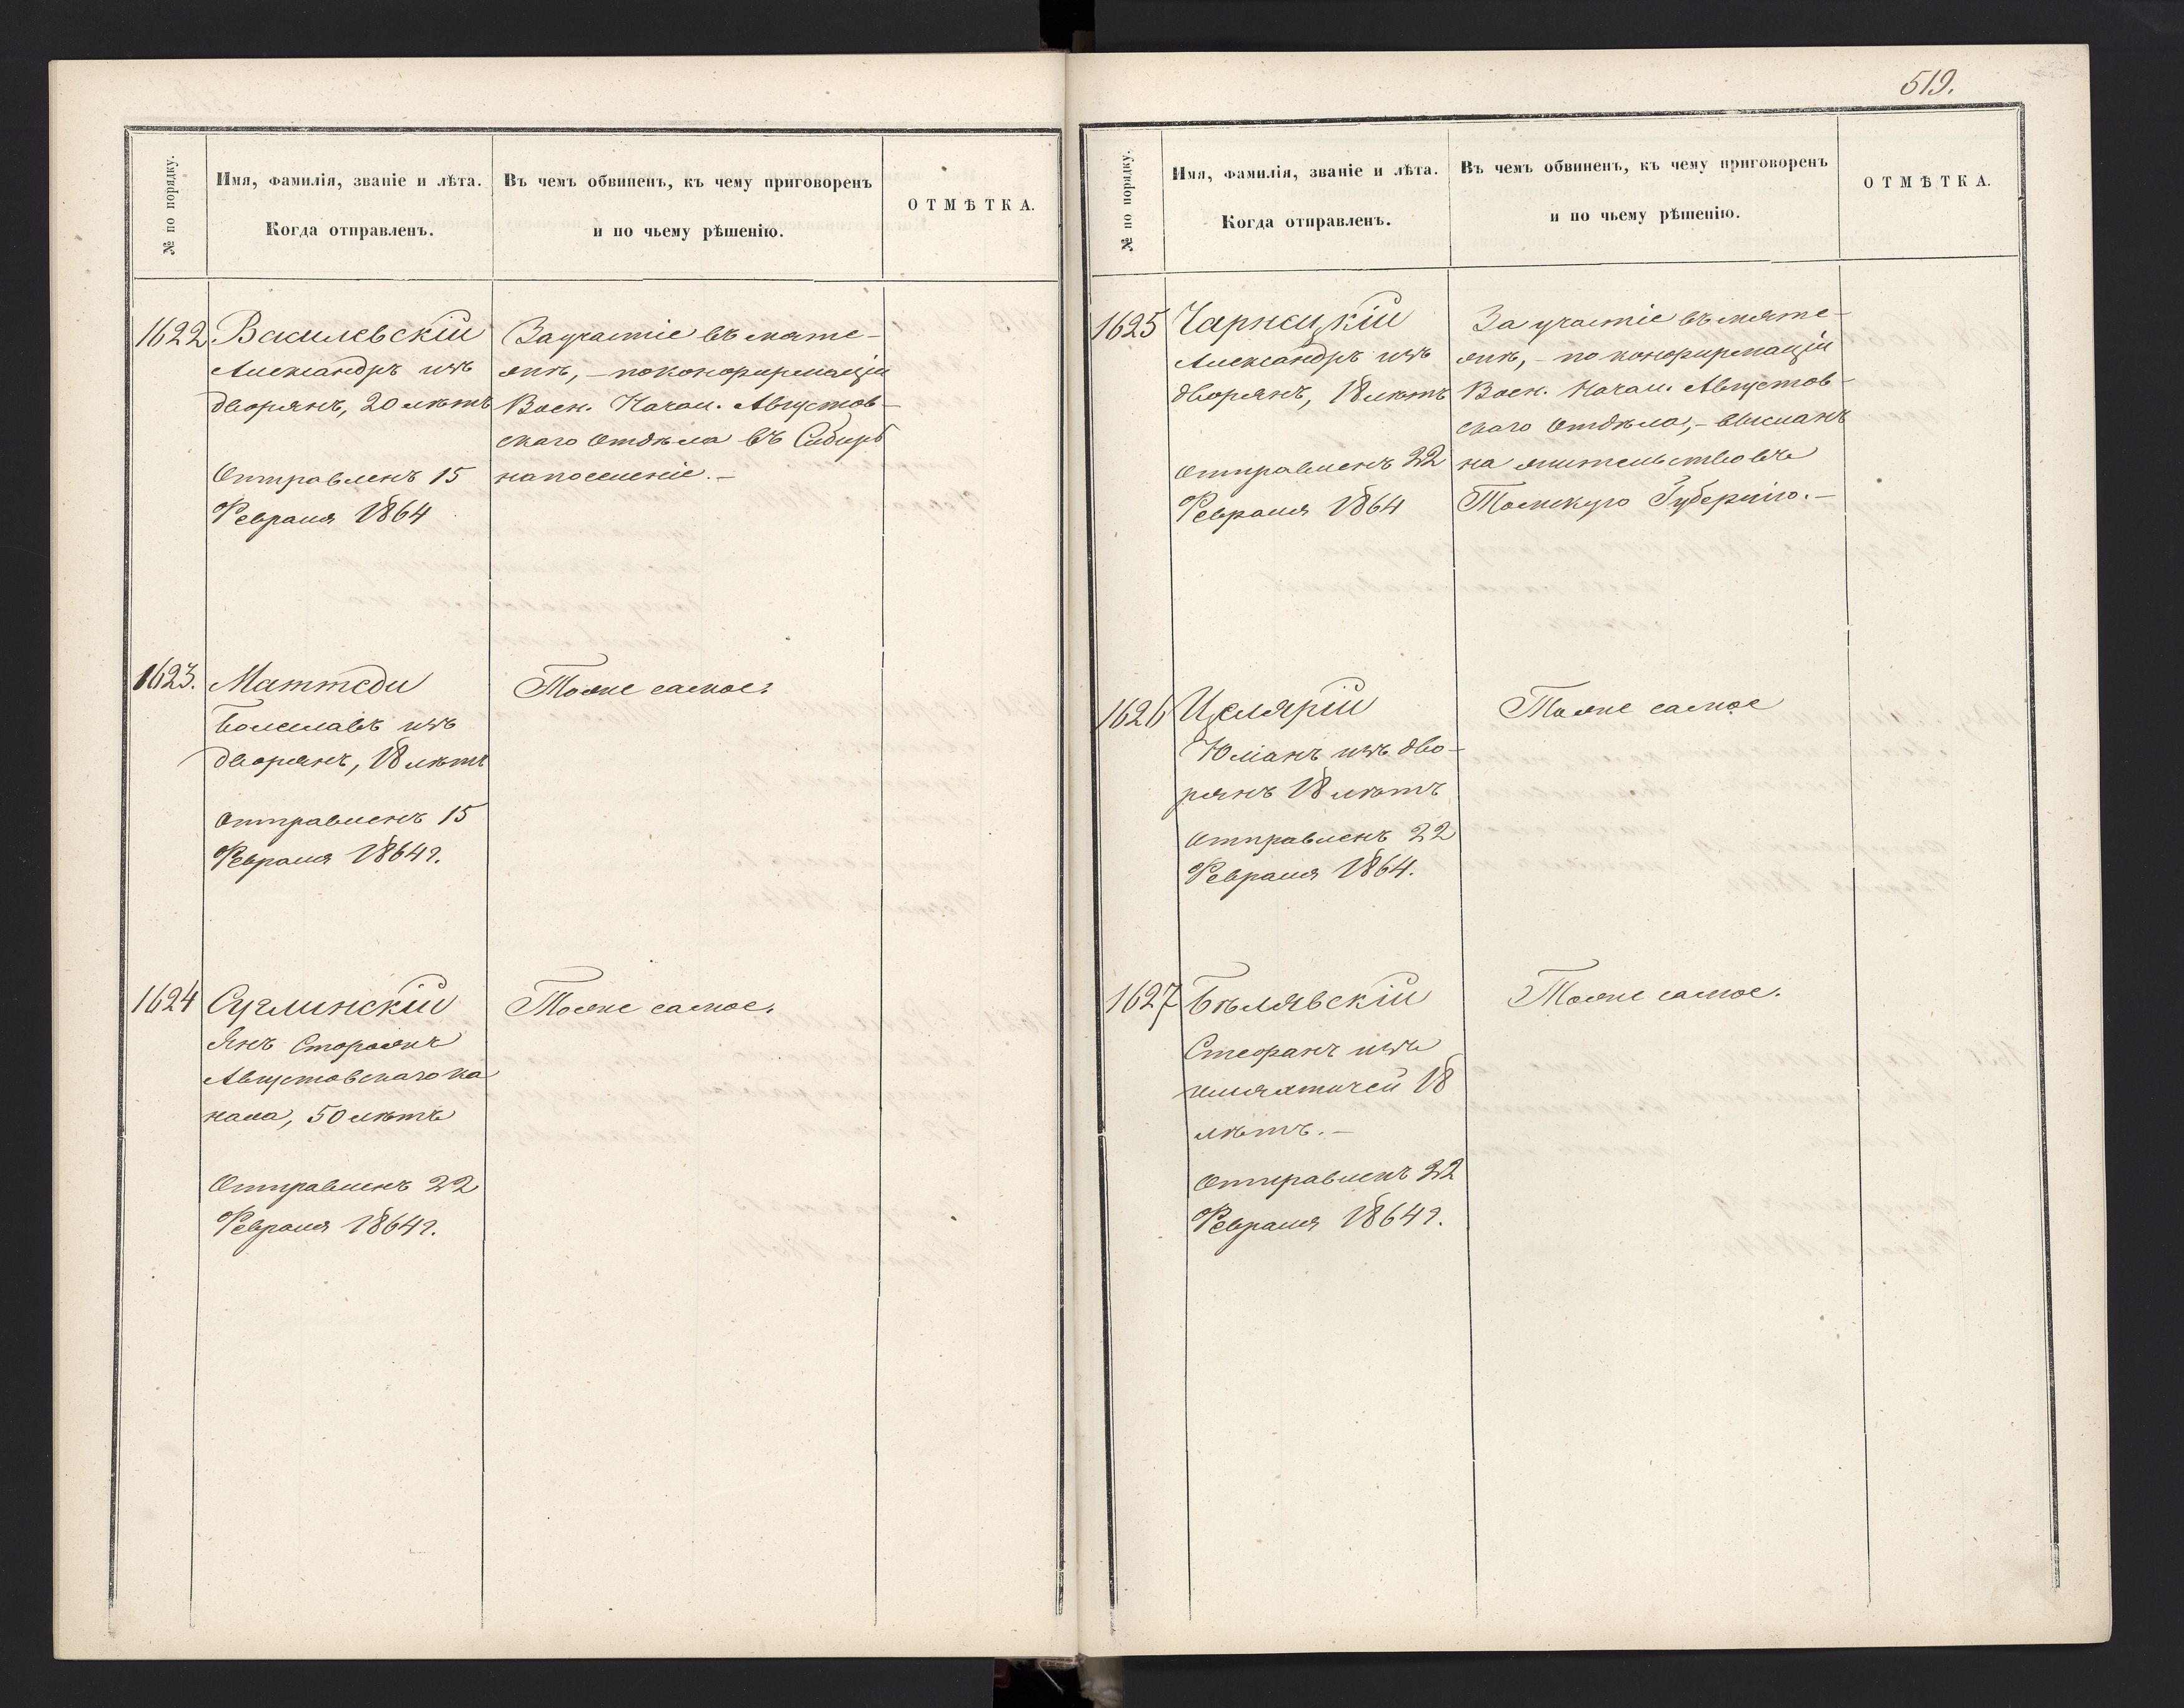 № по порядку.
Имя, фамилія, званіе и лѣта.
Когда отправленъ.
Въ чемъ обвиненъ, къ чему приговоренъ
и по чьему рѣшенію.
ОТМѢТКА.
1622 Василевскій
Александръ изъ
дворянъ, 20 лѣтъ
Отправленъ 15
Февраля 1864
За участіе въ мяте-
жѣ, – по конфирмаціи
Воен. Начал. Августов-
скаго Отдѣла въ Сибирь
на поселеніе. –
1623. Маттеди
Болеславъ изъ
дворянъ, 18 лѣтъ
Отправленъ 15
Февраля 1864 г.
Тоже самое.
1624 Суглинскій
Янъ Сторожъ
Августовскаго ка
нала, 50 лѣтъ
Отправленъ 22
Февраля 1864 г.
Тоже самое.
519.
№ по порядку.
Имя, фамилія, званіе и лѣта.
Когда отправленъ.
Въ чемъ обвиненъ, къ чему приговоренъ
и по чьему рѣшенію.
ОТМѢТКА.
1625 Чарнецкій
Александръ изъ
дворянъ, 18 лѣтъ
Отправленъ 22
Февраля 1864
За участіе въ мяте-
жѣ, – по конфирмаціи
Воен. Начал. Августов-
скаго Отдѣла, – высланъ
на жительство въ
Томскую Губернію. –
1626 Целярій
Юліанъ изъ дво-
рянъ 18 лѣтъ
Отправленъ 22
Февраля 1864.
Тоже самое
1627 Бѣлявскій
Стефанъ изъ
шляхтичей 18
лѣтъ. –
Отправленъ 22
Февраля 1864 г.
Тоже самое.